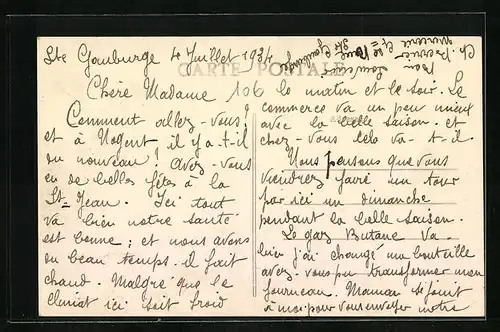 Ste Gauburge 4 Juillet 1934
CARTE POSTALE
Chère Madame
Comment allez-vous?
et à Nogent, il y a-t-il
du nouveau? Avez-vous
eu de belles fêtes à la
St Jean. Ici tout
va bien notre santé
est bonne; et nous avons
du beau temps. il fait
chaud. Malgré que le
climat ici soit froid
le matin et le soir. Le
commerce va un peu mieux
avec la belle saison. et
chez-vous cela va-t-il.
Nous pensons que vous
viendrez faire un tour
par ici un dimanche
pendant la belle saison.
Le gaz Butane va
bien j'ai changé ma bouteille
avez-vous pu transformer mon
fourneau. Maman se joint
à moi pour vous envoyer notre
bon souvenir
Ste Gauburge
Mercerie